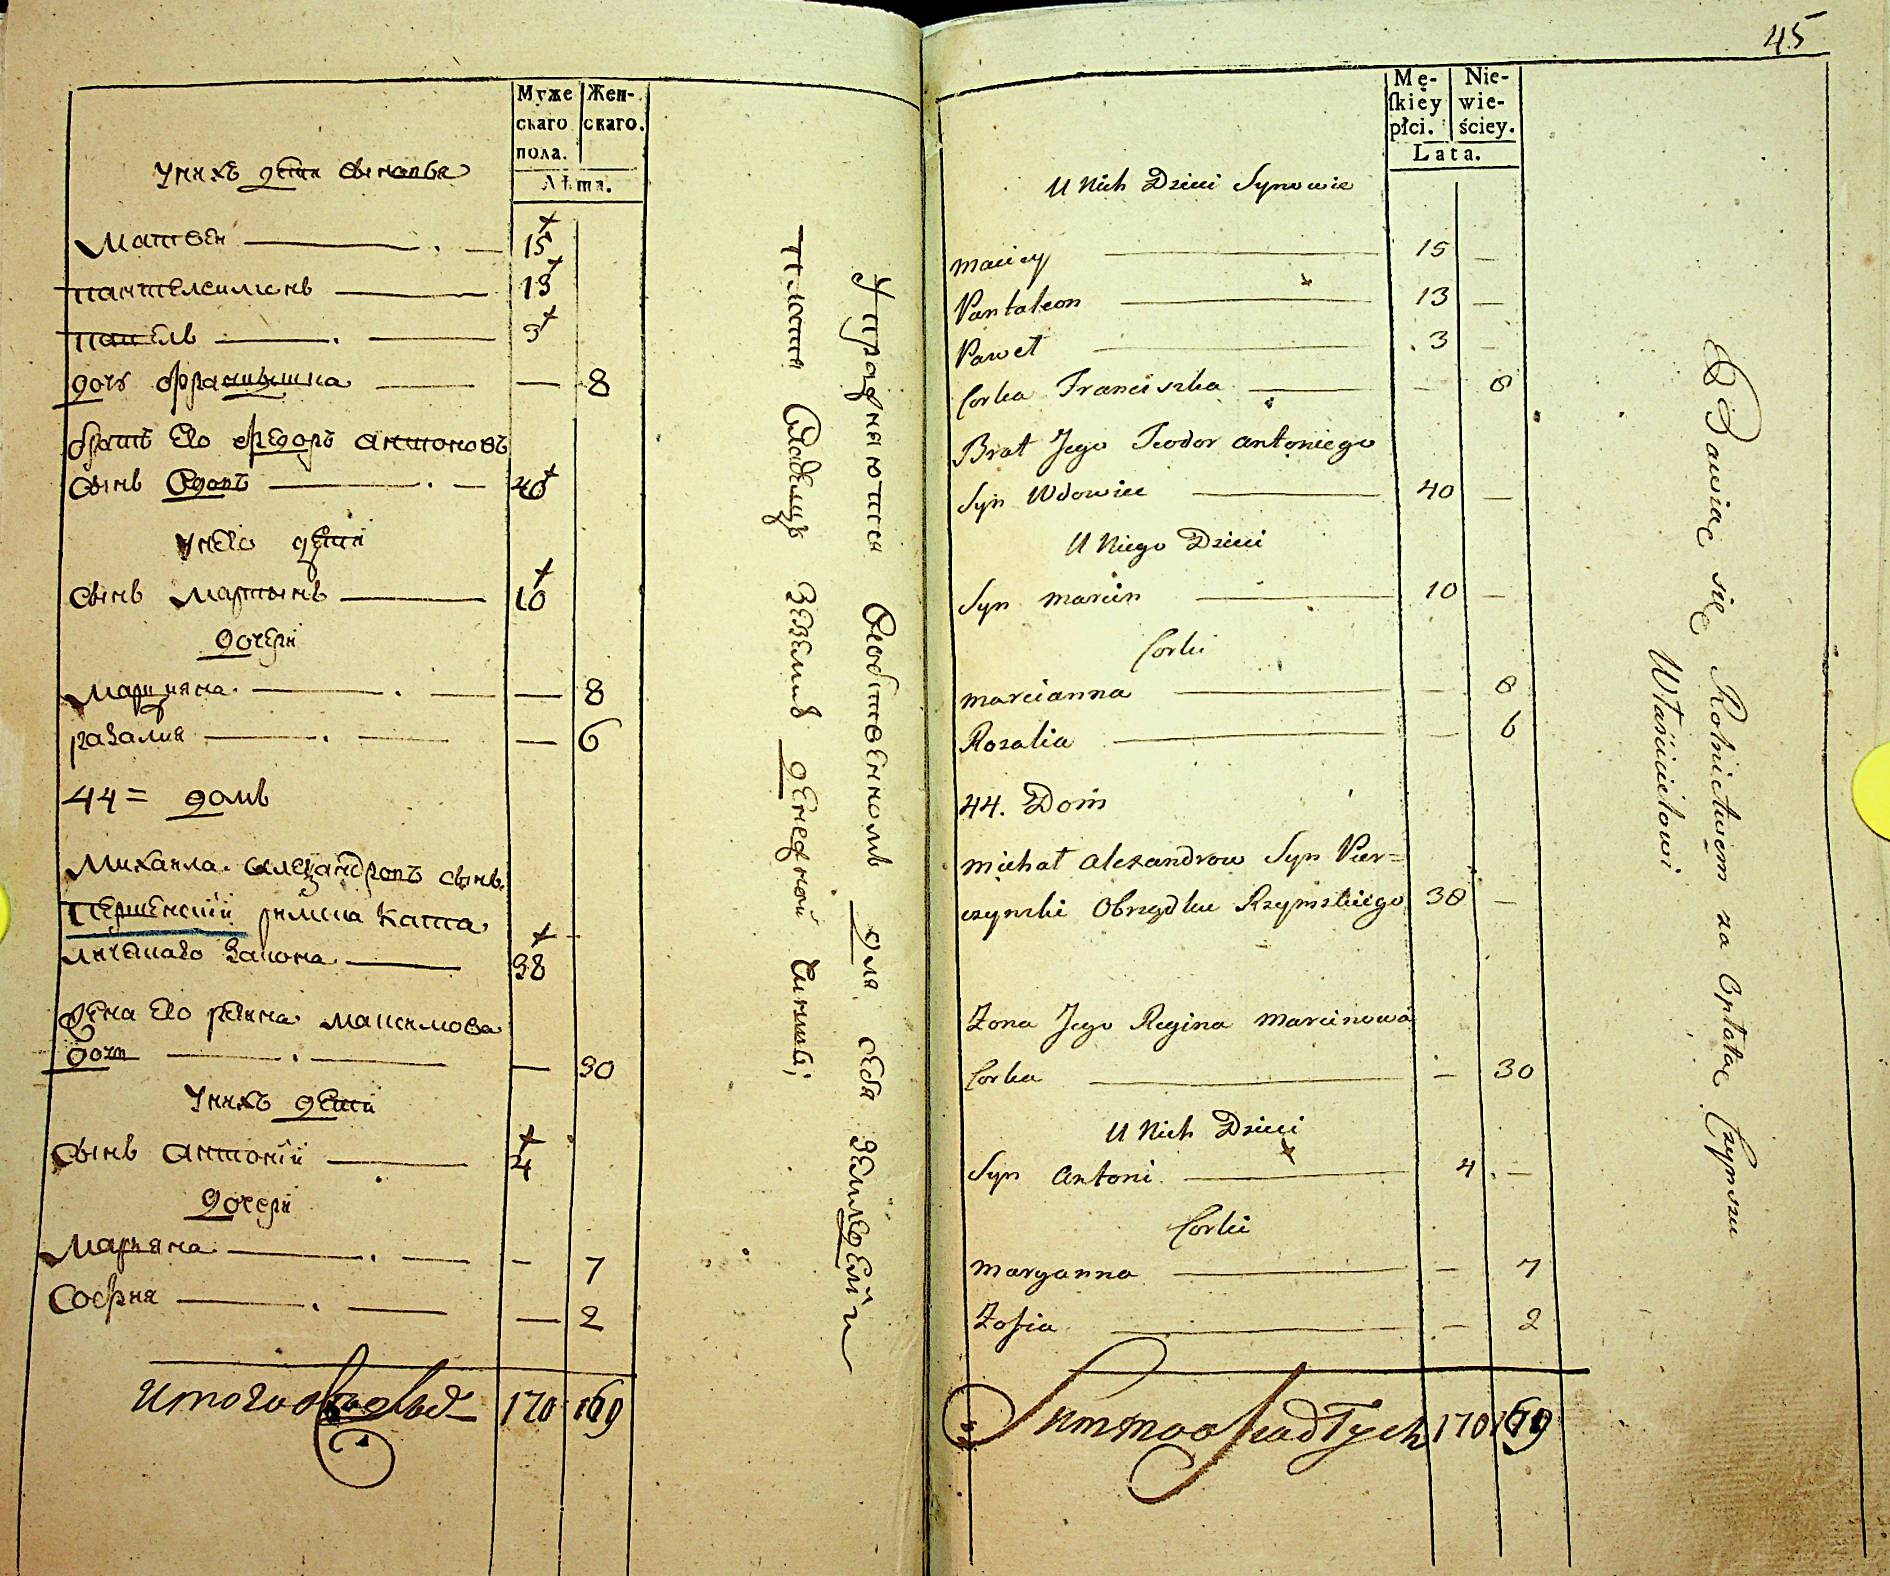 Муже
скаго
пола.
Жен-
скаго.
Лѣта.
Унихъ дети сыновья
Матвеи 15
пантелеимонъ 13
павелъ 3
дочь францишка — 8
братъ его федоръ антоновъ
сынъ вдовъ 40
унего дети
сынъ мартынъ 10
дочери
Марцияна — 8
разалия — 6
44= домъ
Михаила александровъ сынъ
римска като
личешаго закона 38
жена его регина максимова
дочь — 30
Унихъ дети
сынъ антоній 4
дочери
Марьяна — 7
София — 2
итого 170 169
Упражняются для себя и
платя владелцу земли денежной чиншъ;
45
Mę-
ſkiey
płci.
Nie-
wie-
ściey.
Lata.
U Nich Dzieci Synowie
Maciey 15 —
Pantaleon 13 —
Paweł 3 —
Corka Franciszka — 8
Brat Jego Teodor Antoniego
Syn Wdowiec 40 —
U Niego Dzieci
Syn Marcin 10 —
Corki
Marcianna — 8
Rozalia — 6
44. Dom
Michał Alexandrow Syn Pier=
czynski Obrządku Rzymskiego 38 —
Żona Jego Regina Marcinowa
Corka — 30
U Nich Dzieci
Syn Antoni 4 —
Corki
Maryanna — 7
Zofia — 2
Summa 170 169
Bawiąc się Rolnictwem za Opłatąę Czynszu
Właścicielowi